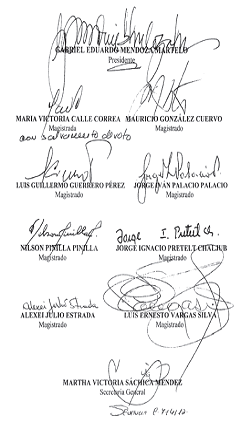 GABRIEL EDUARDO MENDOZA MARTELO
Presidente
MARIA VICTORIA CALLE CORREA MAURICIO GONZÁLEZ CUERVO
Magistrada Magistrado
con salvamento de voto
LUIS GUILLERMO GUERRERO PÉREZ JORGE IVÁN PALACIO PALACIO
Magistrado Magistrado
Jorge I. Pretelt Ch.
NILSON PINILLA PINILLA JORGE IGNACIO PRETELT CHALJUB
Magistrado Magistrado
Alexei Julio Estrada
ALEXEI JULIO ESTRADA LUIS ERNESTO VARGAS SILVA
Magistrado Magistrado
MARTHA VICTORIA SÁCHICA MÉNDEZ
Secretaria General